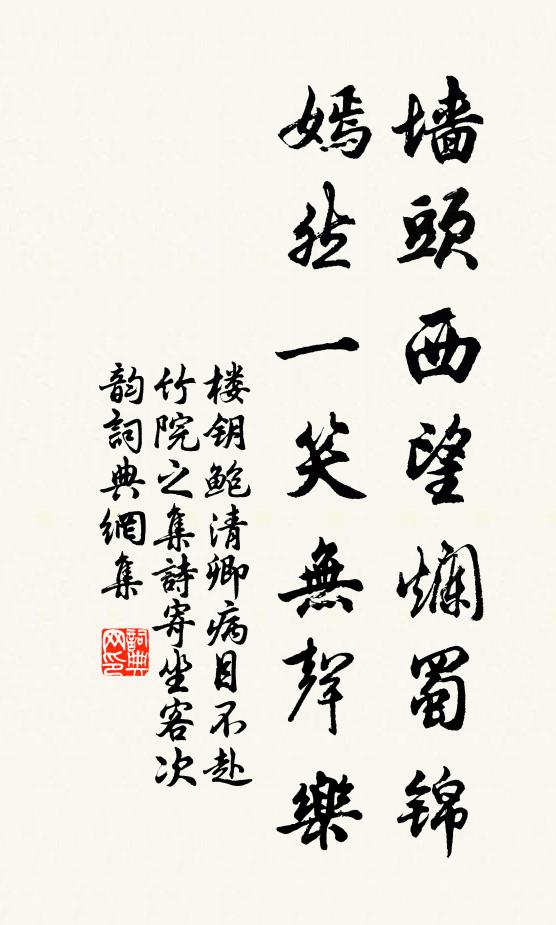 墙頭西望爛蜀锦
嫣然一笑無聲樂
楼钥鲍清卿病目不赴
竹院之集詩寄坐客次
韵詞典網集
詞典
网印